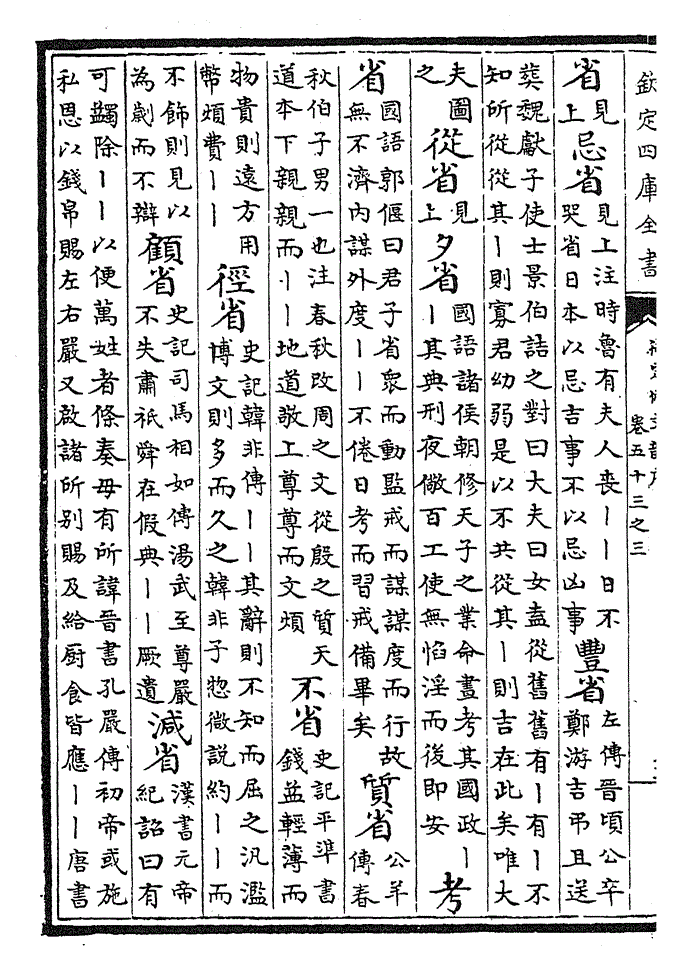 欽定四庫全書 卷五十三之三
省見上忌省見上注時魯有夫人喪丨丨日不哭省日本以忌吉事不以忌凶事豐省左傳晉頃公卒鄭游吉弔且送
葬魏獻子使士景伯詰之對曰大夫曰女盍從舊舊有丨有丨不知所從從其丨則寡君幼弱是以不共從其丨則吉在此矣唯大
夫圖之從省見上夕省國語諸侯朝修天子之業命晝考其國政丨丨其典刑夜儆百工使無慆淫而後即安考
省國語郭偃曰君子省衆而動監戒而謀謀度而行故無不濟內謀外度丨丨不倦日考而習戒備畢矣質省公羊傳春
秋伯子男一也注春秋改周之文從殷之質天道本下親親而丨丨地道敬上尊尊而文煩不省史記平準書錢益輕薄而
物貴則遠方用幣煩費丨丨徑省史記韓非傳丨丨其辭則不知而屈之汎濫博文則多而久之韓非子惣微說約丨丨而
不飾則見以為劌而不辯顧省史記司馬相如傳湯武至尊嚴不失肅祗舜在假典丨丨厥遺減省漢書元帝紀詔曰有
可蠲除丨丨以便萬姓者條奏毋有所諱晉書孔嚴傳初帝或施私恩以錢帛賜左右嚴又啟諸所別賜及給厨食皆應丨丨唐書